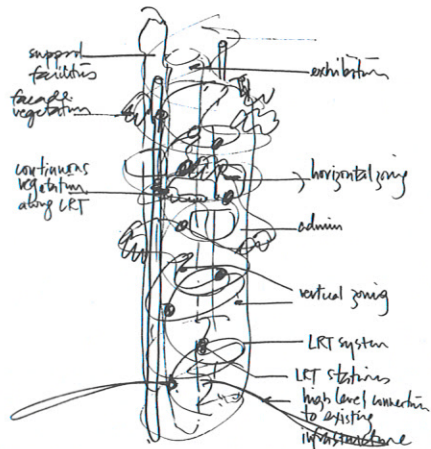 support
facilities
facade
vegetation
continuous
vegetation
along LRT
exhibition
horizontal zoning
admin
vertical zoning
LRT system
LRT stations
high level connection
to existing
infrastructure